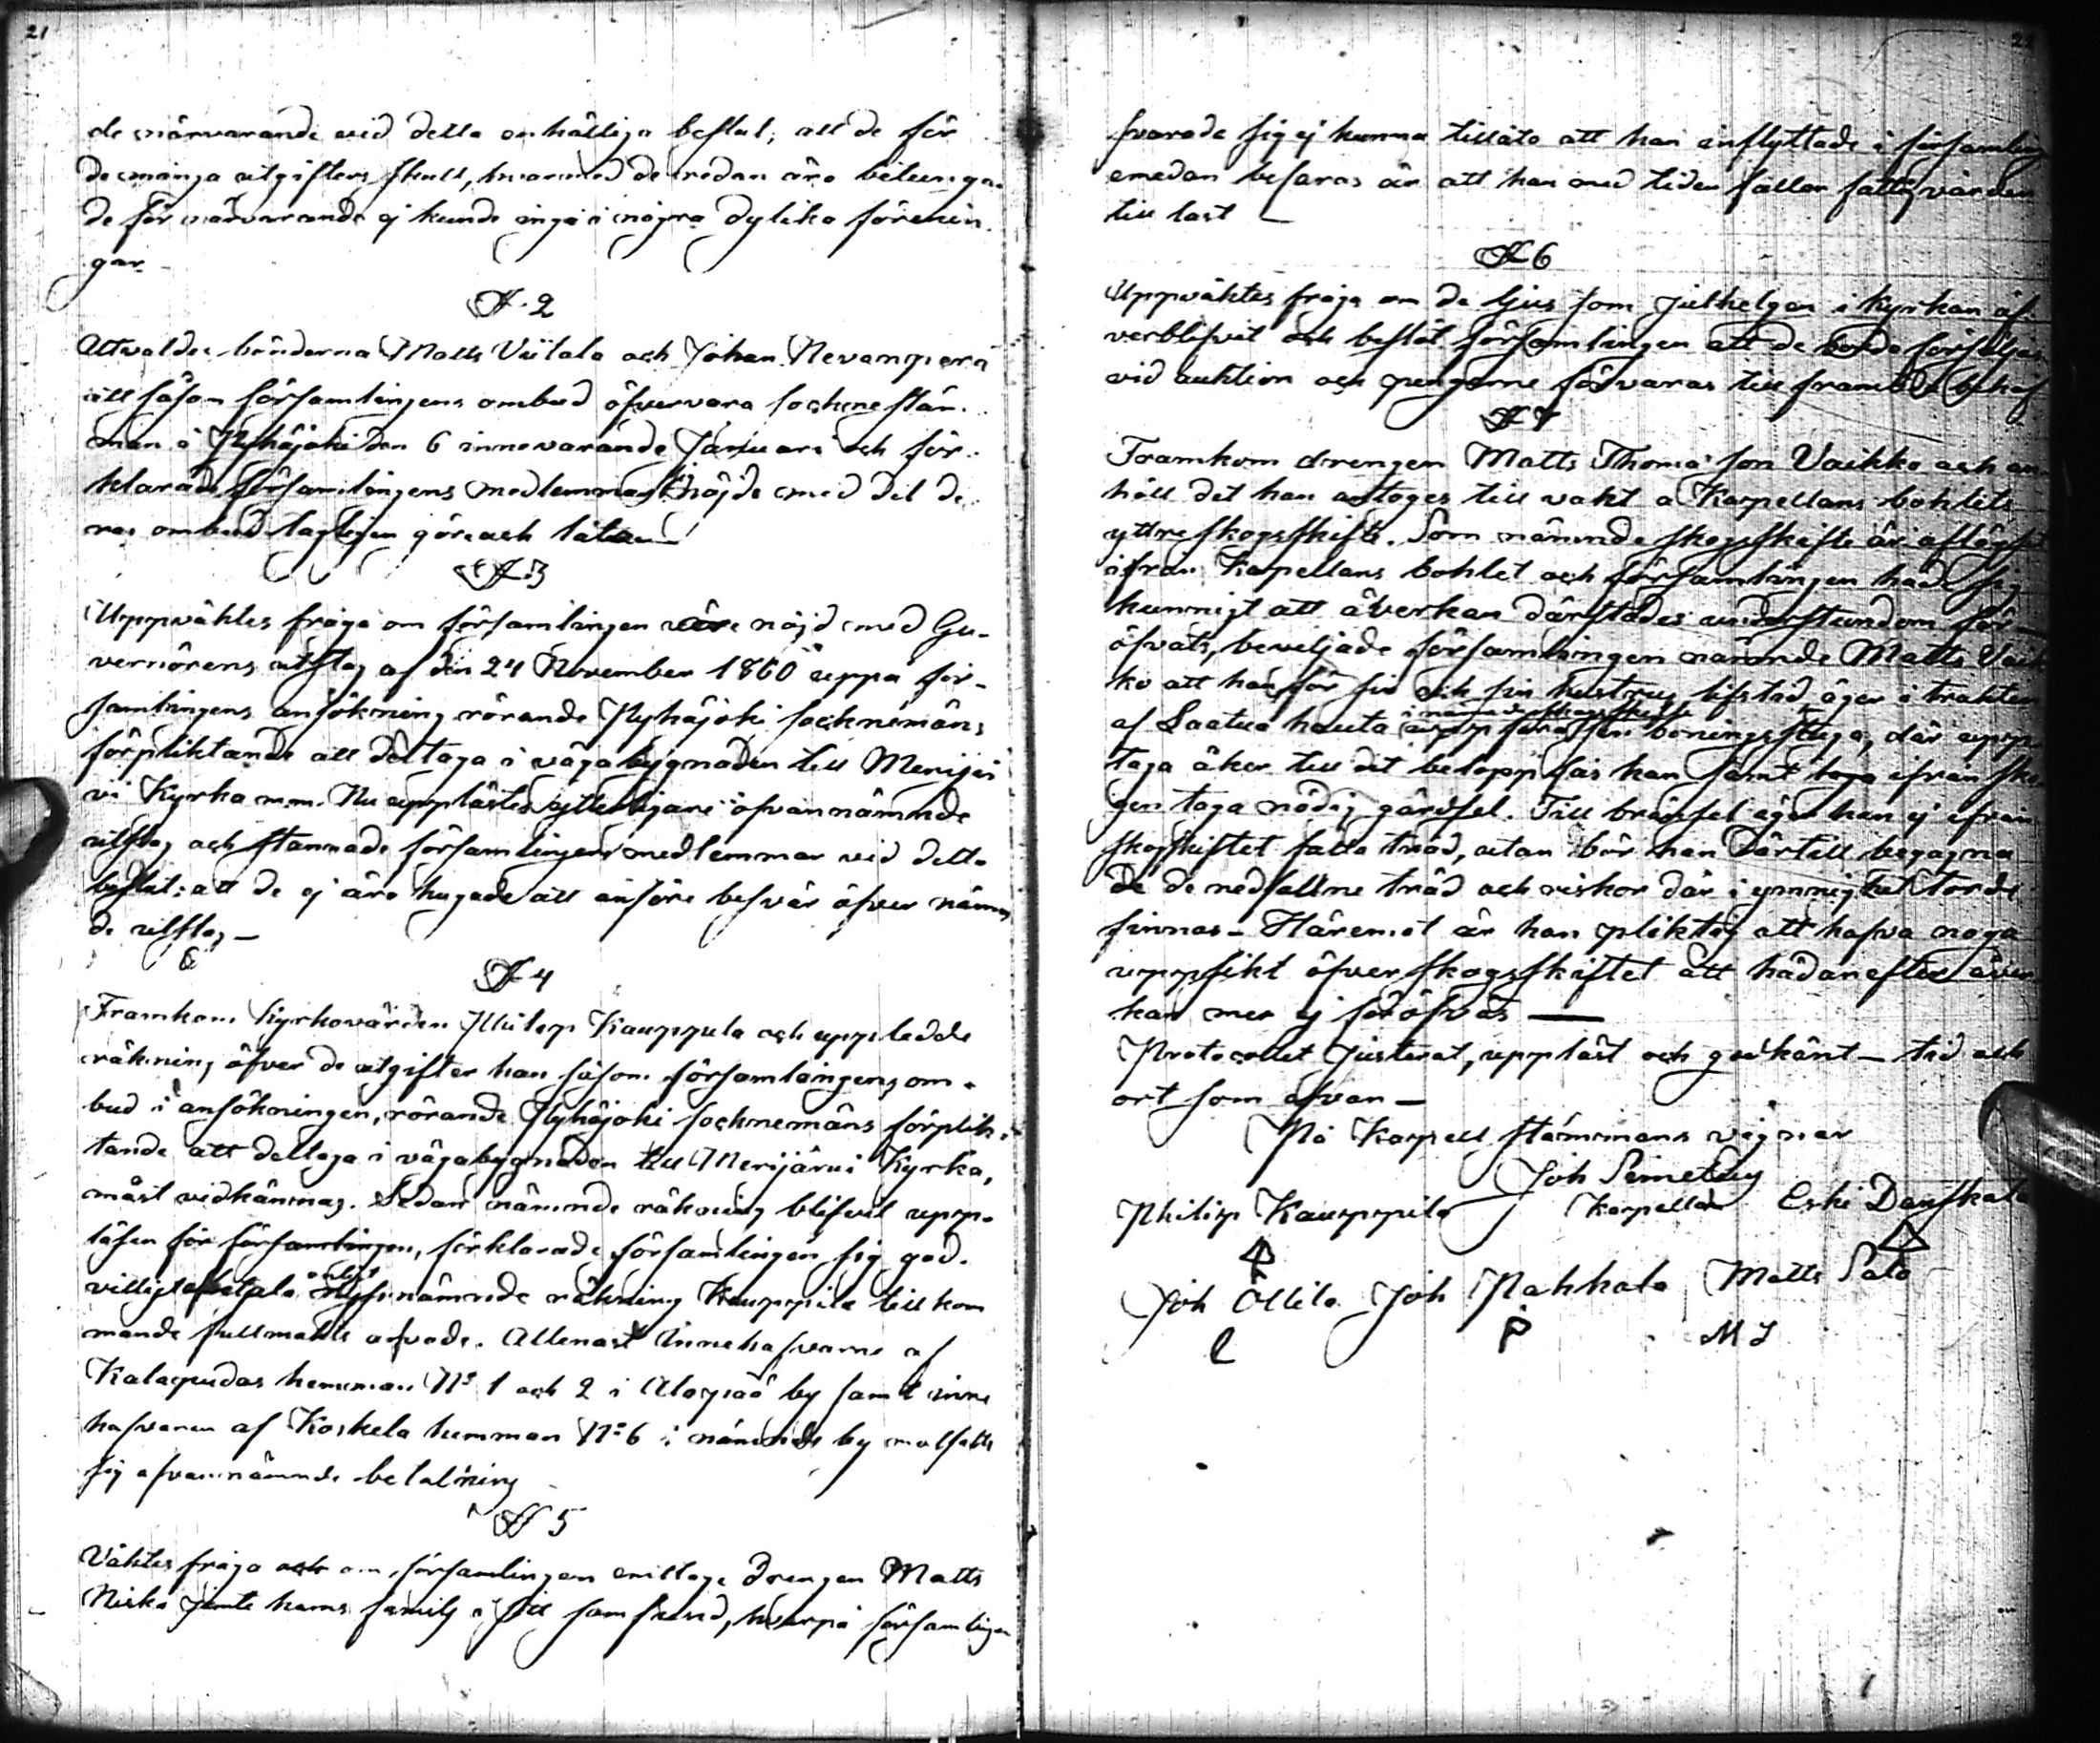 21
de närvarande vid detta enhälliga beslut, att de för
de många utgifters skull, hvarmed de redan äro betunga-
de för närvarande ej kunde ingå i några dylika förenin-
gar.
§ 2
Utvaldes bönderna Matts Viitala och Johan Nevanperä
att såsom församlingens ombud öfvervara socknestäm-
man i Pyhäjoki den 6 innevarande Januari och för-
klarade församlingens medlemmar nöjde med det de-
ras ombud lagligen göra och låta
§ 3
Uppväktes fråga om församlingen vore nöjd med Gu-
vernörens utslag af den 24 November 1860 uppå för-
samlingens ansökning rörande Pyhäjoki socknemäns
förpliktande att deltaga i vägabygnaden till Merijär
vi Kyrka m.m. Nu upplästes ytterligare ofvannämnde
utslag och stannade församlingens medlemmar vid detta
beslut: att de ej äro hugade att anföra besvär öfver nämn
de utslag —
§ 4
Framkom Kyrkovärden Philip Kauppila och uppledde
räkning öfver de utgifter han såsom församlingens om-
bud i ansökningen, rörande Pyhäjoki socknemäns förplik-
tande att deltaga i vägabygnaden till Merijärvi Kyrka,
måst vidkännas. Sedan nämnde räkning blifvit upp-
läsen för församlingen, förklarade församlingen sig god-
villigt betala enligt nyssnämnde räkning Kauppila till kom
mande fullmakts arfvode. Allenast Innehafvarne af
Kalapudas hemman N:o 1 och 2 i Alapää by samt inne
hafvaren af Koskela hemman N:o 6 i nämnde by motsatte
sig ofvannämnde betalning
§ 5
Väktes fråga och om församlingen emottage drengen Matts
Niska jämte hans familj i sitt samfund, hvarpå församlingen
svarade sig ej kunna tillåta att han inflyttade i församling
emedan befaras är att han med tiden faller fattigvården
till last —
§ 6
Uppväktes fråga om de ljus som Julhelgen i Kyrkan öf-
verblifvit och beslöt församlingen att de borde försäljas
vid auktion och pengarne förvaras till framtida behof
§ 7
Framkom drengen Matts Thomas son Vaikko och an
höll det han antoges till vakt å Kapellans bohlets
yttre skogsskifte. Som nämnde skogsskifte är aflägset
ifrån Kapellans bohlet och församlingen hade sig
kunnigt att åverkan därstädes understundom för-
öfvats, beveljade församlingen nämnde Matts Vaik
ko att han för sin och sin hustrus lifstid äger i trakten
af Laatua hauta i nämnde skogsskifte uppföra sin boningsstuga, där upp
taga åker till det belopp han samt taga ifrån sko
gen taga nödig gärdsel. Till bränsel äger han ej ifrån
skogskiftet fälla träd, utan bör han därtill begagna
de de nedfallne träd och riskor där i ymnighet torde
finnas — Häremot är han pliktig att hafva noga
uppsikt öfver skogsskiftet att hädanefter åver
kan mer ej föröfvas —
Protocollet justerat, uppläst och godkänt — tid och
ort som ofvan —
På Kapell stämmans vägnar
Joh Simelius
Kapellan
Philip Kauppila
Eski Danskala
Joh Ollila Joh Pahkala Matts Salo
P
M S